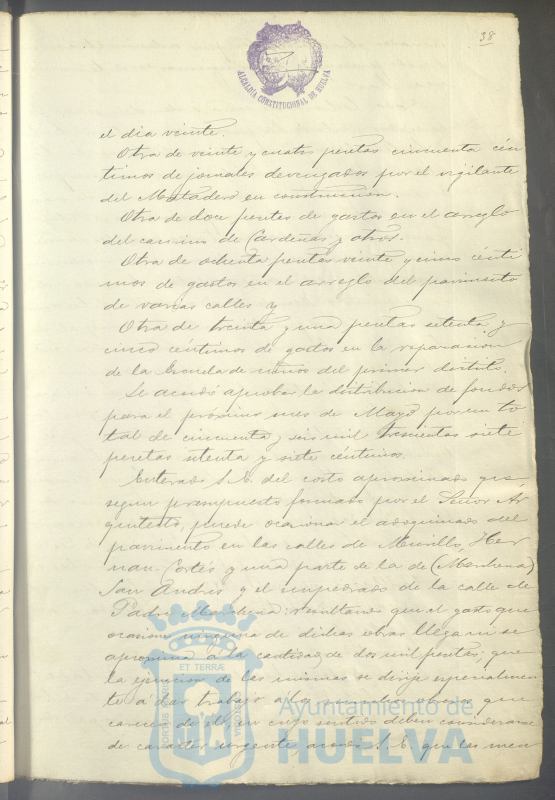 38
ALCALDIA CONSTITUCIONAL DE HUELVA
el dia veinte.
Otra de veinte y cuatro pesetas cincuenta cén
timos de jornales devengados por el vigilante
del Matadero en construccion.
Otra de doce pesetas de gastos en el arreglo
del camino de Cardeñas y otros.
Otra de ochenta pesetas veinte y cinco cénti
mos de gastos en el arreglo del pavimento
de varias calles y
Otra de treinta y una pesetas setenta y
cinco céntimos de gastos en la reparacion
de la Escuela de niños del primer distrito.
Se acordó aprobar la distribucion de fondos
para el próximo mes de Mayo por un to
tal de cincuenta y seis mil trescientas siete
pesetas setenta y siete céntimos.
Enterado S. E. del costo aproximado que
segun presupuesto formado por el Señor Ar
quitecto, puede ocasionar el adoquinado del
pavimento en las calles de Murillo, Her
nan-Cortés y una parte de la de (Marchena)
San Andrés y el empedrado de la calle de
Padre Marchena: resultando que el gasto que
ocasione ninguna de dichas obras llega ni se
aproxima á la cantidad de dos mil pesetas, que
la ejecucion de las mismas se dirije especialmen
te á dar trabajo á los obreros que
carecen de él, en cuyo sentido deben considerarse
de carácter urgente acordó S. E. que las men
ET TERRÆ
Ayuntamiento de
HUELVA